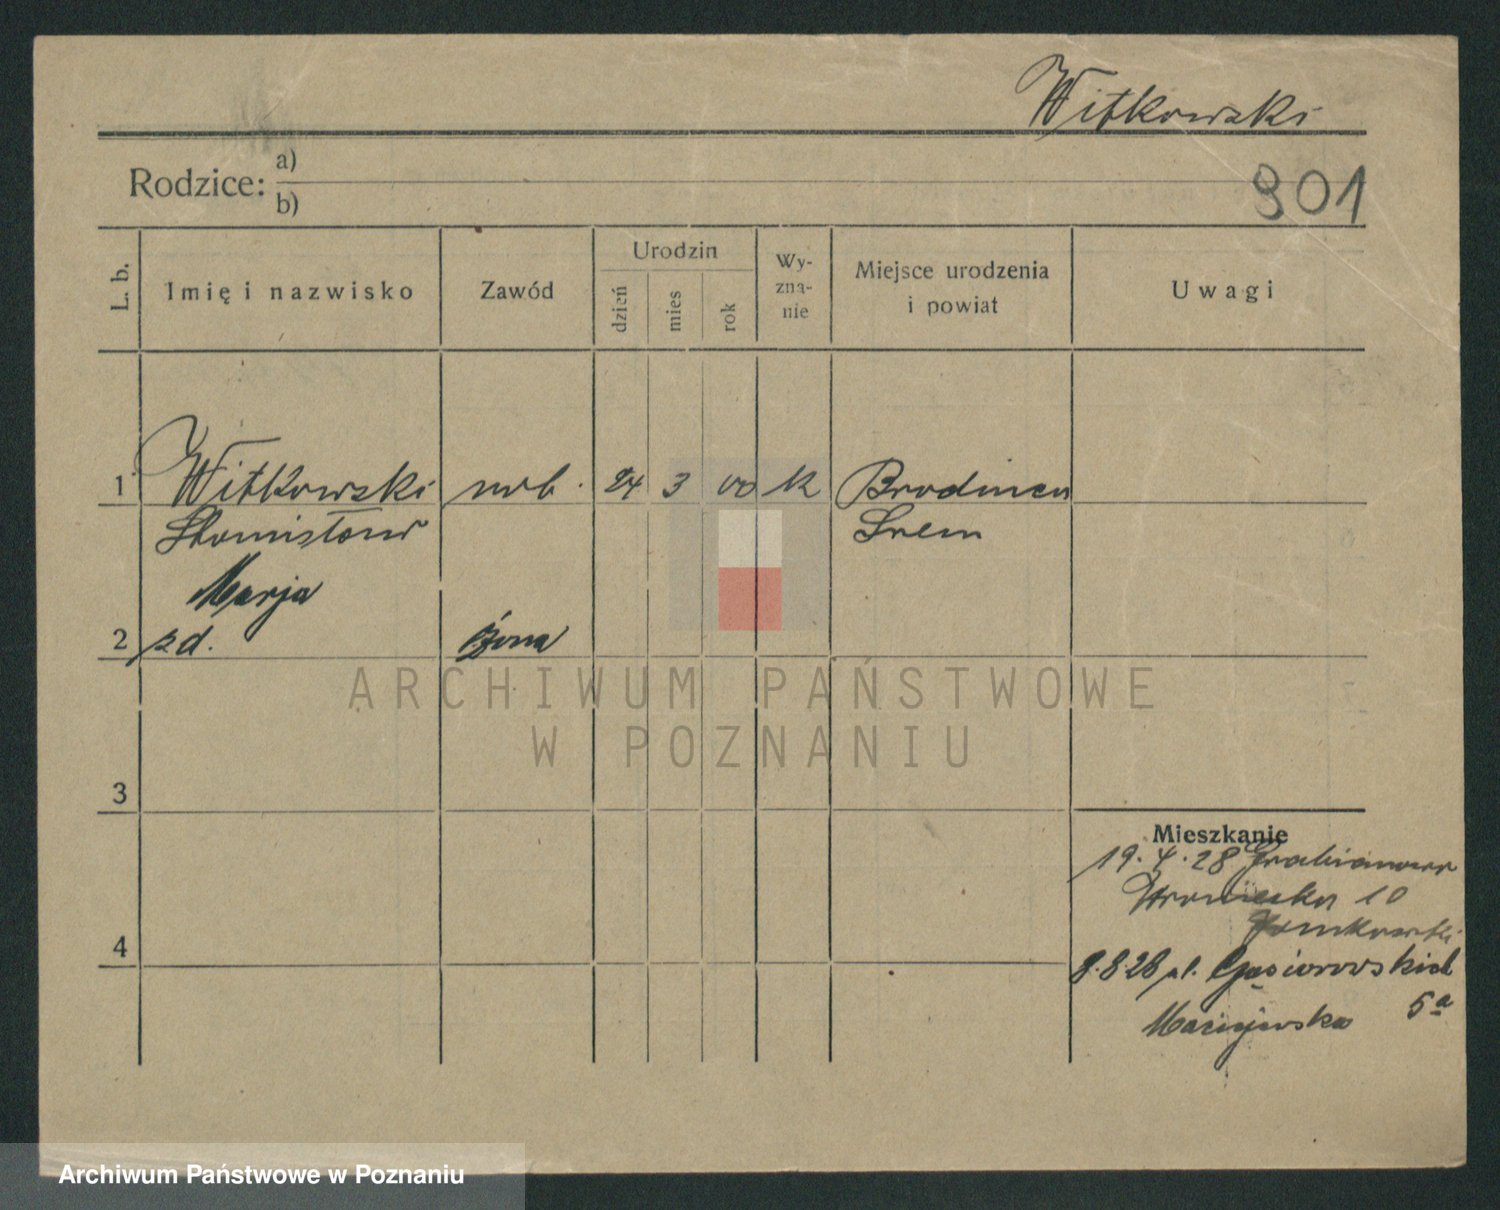 Witkowski
Rodzice: a)
b)
901
L. b.
Imię i nazwisko
Zawód
Urodzin
dzień
mies
rok
Wy-
zna-
nie
Miejsce urodzenia
i powiat
Uwagi
1 Witkowski rob. 24 3 00 k
Stanisław Śrem
Marja
2 zd. żona
ARCHIWUM PAŃSTWOWE
W POZNANIU
3
Mieszkanie
19.4.28
10
4
8.8.28 pl. Gąsiorowskich
Maciejewska 5a
Archiwum Państwowe w Poznaniu